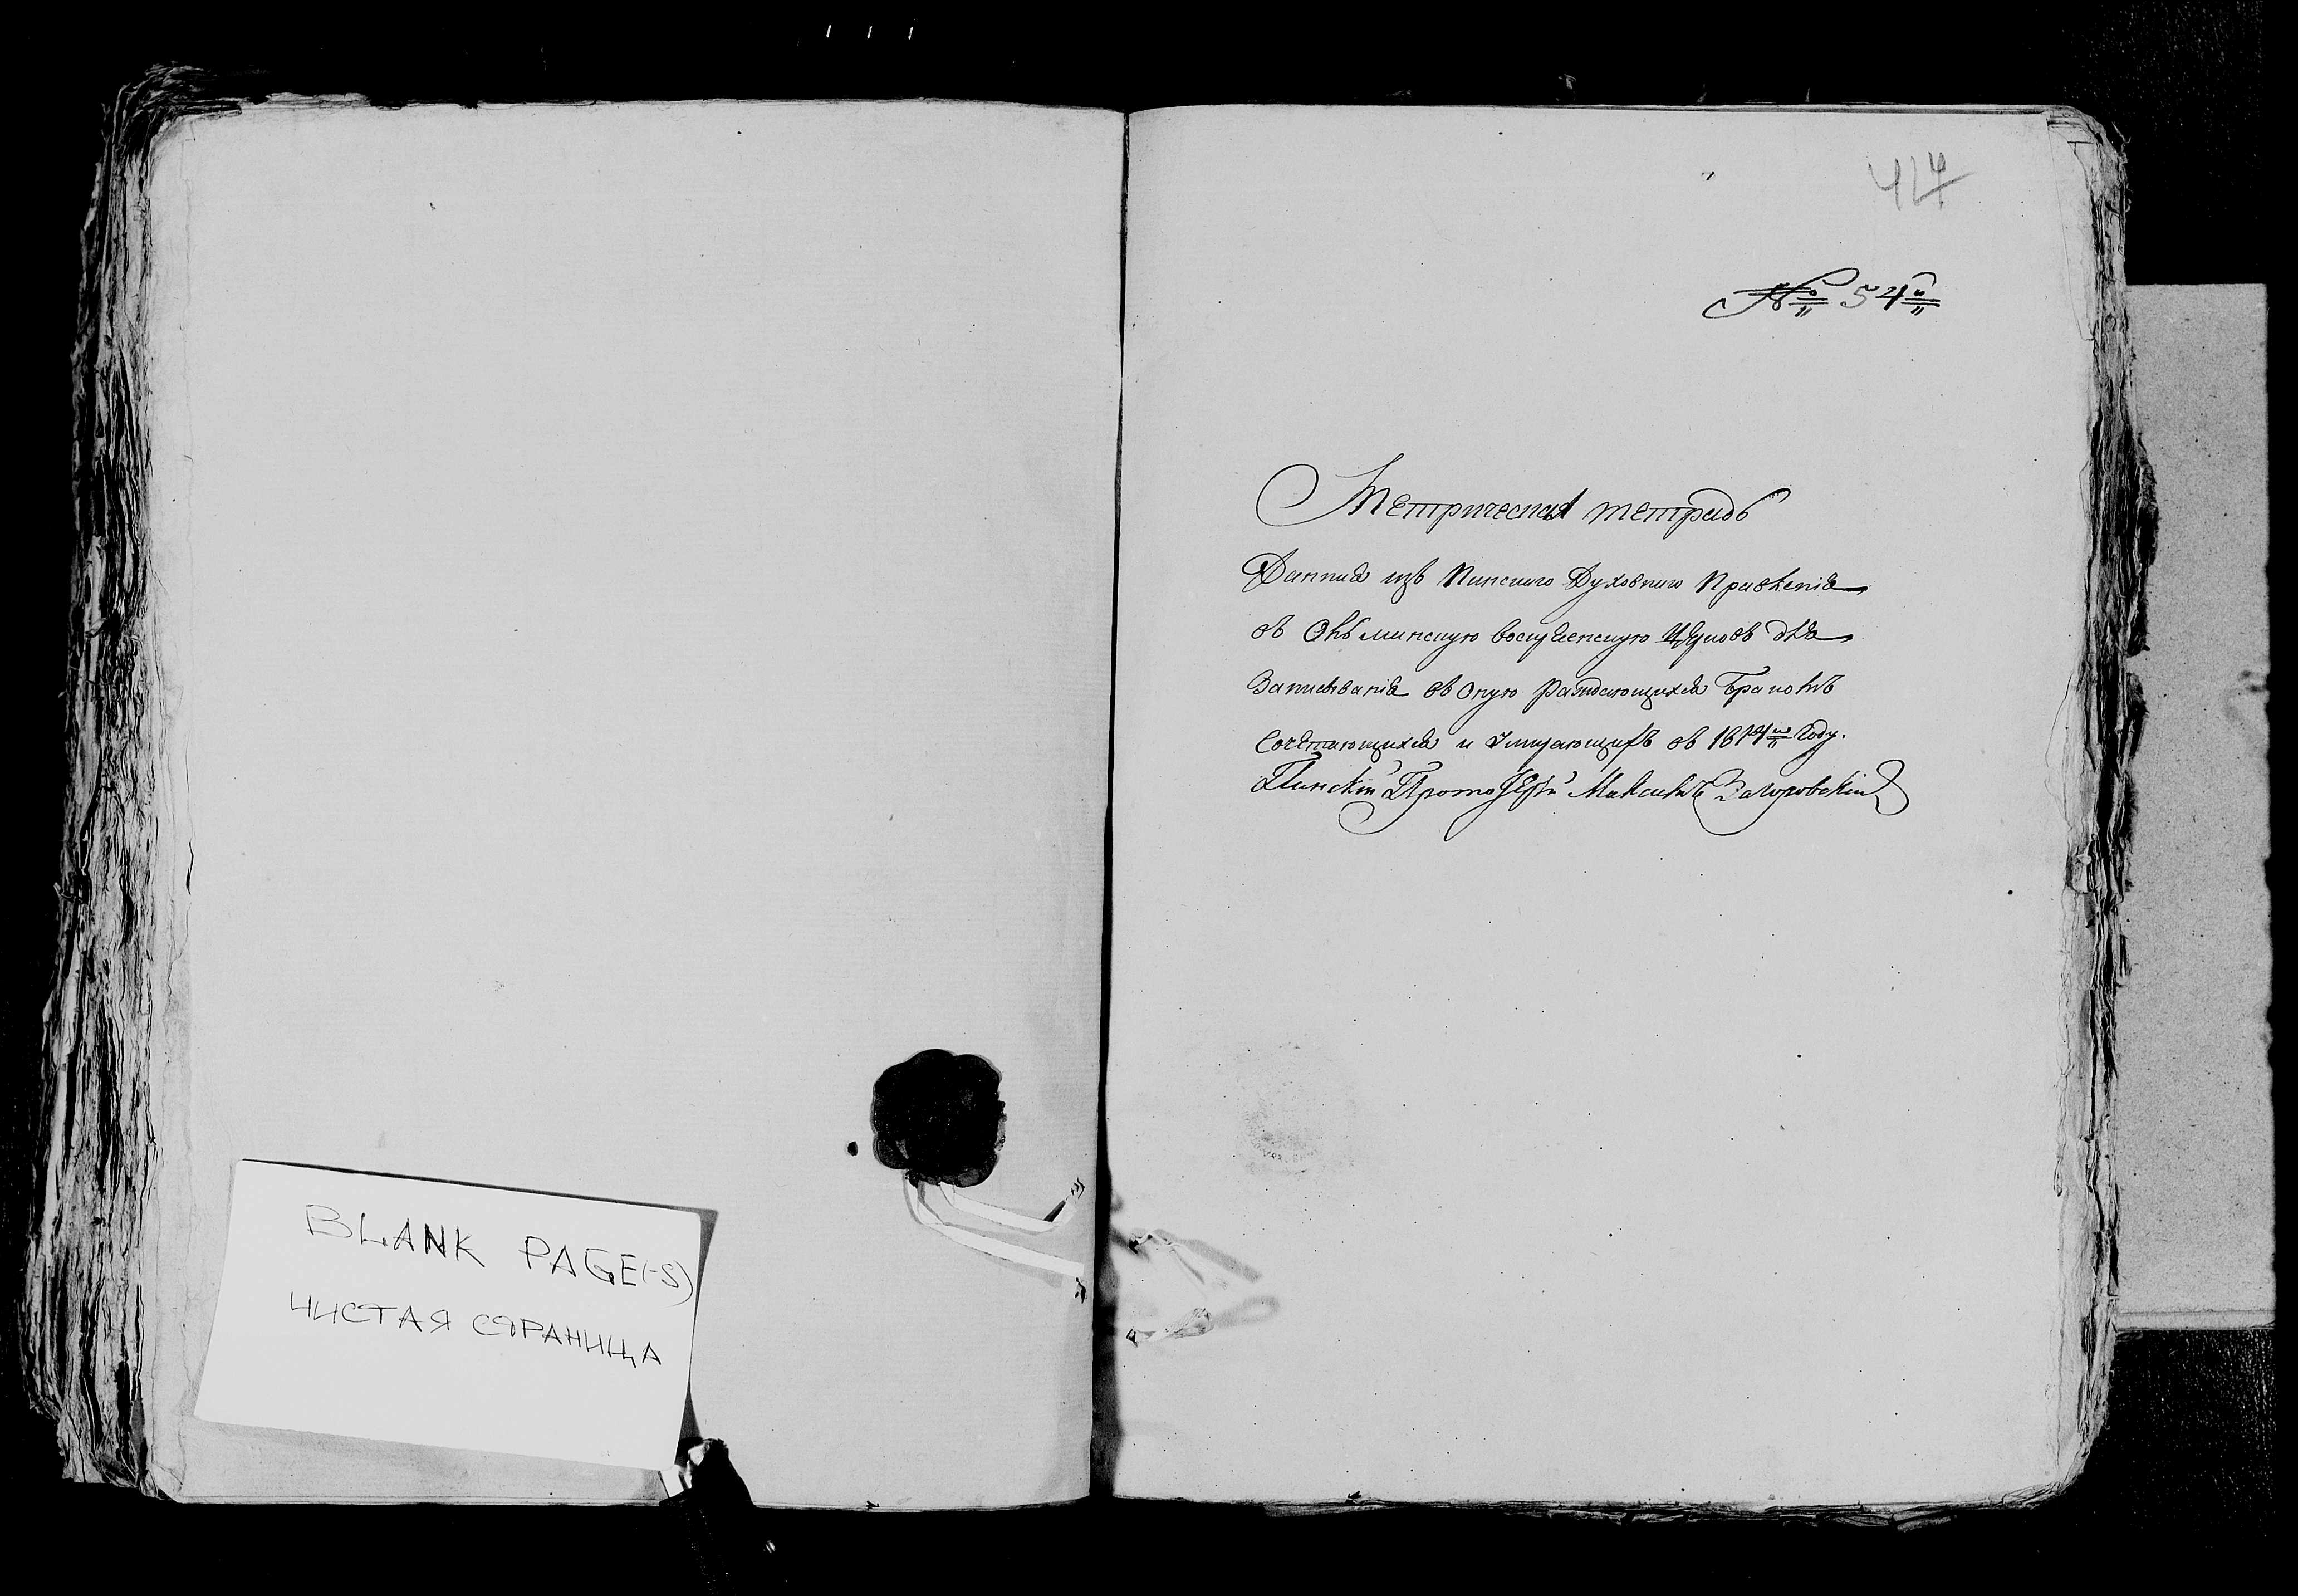 BLANK PAGE(-S)
ЧИСТАЯ СТРАНИЦА
424
№ 54й
Метрическая тетрадь
Данная изъ Пинскаго Духовнаго Правленія
въ воскресенскую Церковь для
Записыванія въ оную раждающихся бракомъ
Сочетающихся и умирающихъ въ 1814м году.
Пинскій Протоіерей Максимъ Загоровскій